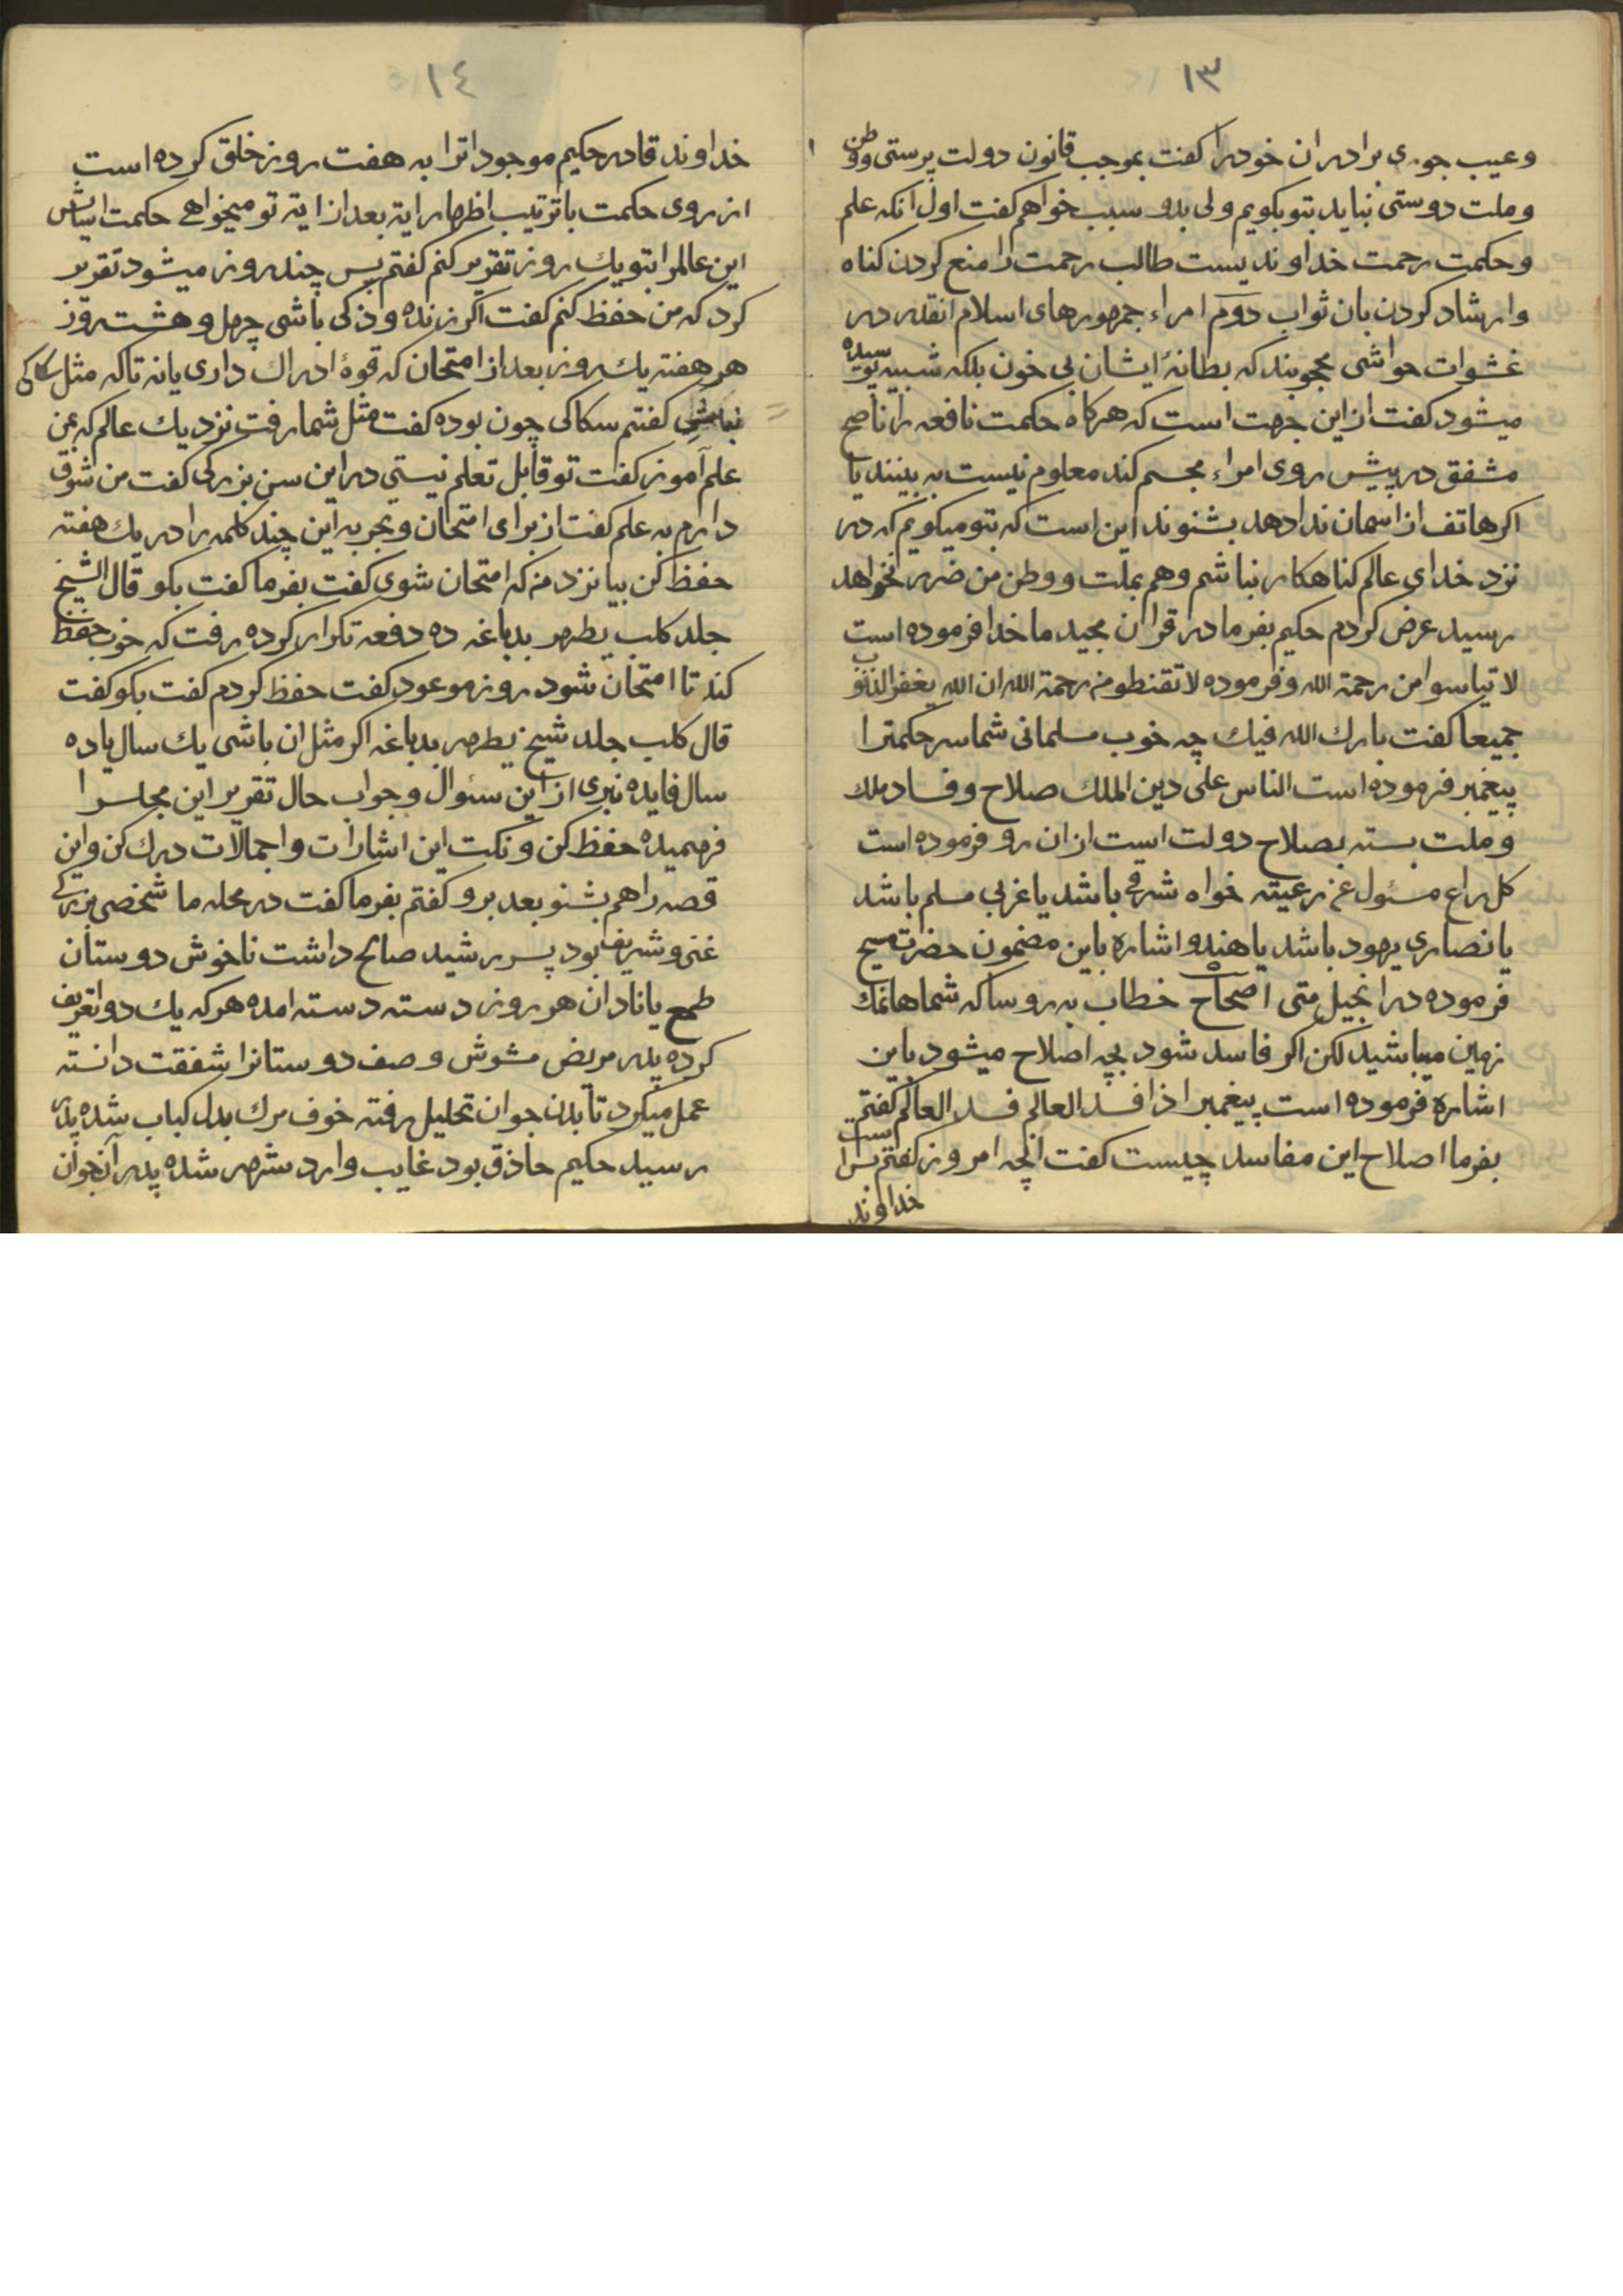 ١٣
وعیب جوی برادران خودرا کفت بموجب قانون دولت پرستی ووطن
وملت دوستی نباید بتو بکویم ولی بدو سبب خواهم کفت اول انکه علم
وحکمت رحمت خداوندیست طالب رحمت را منع کردن کناه
وارشاد کردن بان ثواب دوم امراء جمهورهای اسلام انقدر در
غشوات حواشی محجوبند که بطانهٔ ایشان بی خون بلکه شبیه پوسیده
میشود کفت از این جهت است که هرکاه حکمت نافعه را ناصح
مشفق در پیش روی امراء مجسم کند معلوم نیست به بینند یا
اکر هاتف از اسمان ندا دهد بشنوند این است که بتو میکویم که در
نزد خدای عالم کناهکار نباشم وهم بملت ووطن من ضرر نخواهد
رسید عرض کردم حکیم بفرما در قران مجید ما خدا فرموده است
لا تیاسوا من رحمة الله وفرموده لا تقنطو من رحمة الله ان الله یغفر الذنوب
جمیعا کفت بارك الله فیك چه خوب مسلمانی شما سر حکمترا
پیغمبر فرموده است الناس علی دین الملك صلاح وفساد ملك
وملت بسته بصلاح دولت است از ان رو فرموده است
کل راع مسئول عن رعیته خواه شرقی باشد یا غربی مسلم باشد
یا نصاری یهود باشد یا هندو اشاره باین مضمون حضرت مسیح
فرموده در انجیل متی اصحاح خطاب به روسا که شماها نمك
زمین میباشید لکن اکر فاسد شود بچه اصلاح میشود باین
اشاره فرموده است پیغمبر اذا فسد العالم فسد العالم کفتم
بفرما اصلاح این مفاسد چیست کفت انچه امروز کفتم بس است
خداوند
١٤
خداوند قادر حکیم موجوداترا به هفت روز خلق کرده است
از روی حکمت با ترتیب اظهار ایة بعد از ایة تو میخواهی حکمت اسایش
این عالمرا بتو یك روز تقریر کنم کفتم پس چند روز میشود تقریر
کرد که من حفظ کنم کفت اکر زنده وذکی باشی چهل وهشت روز
هر هفته یك روز بعد از امتحان که قوهٔ ادراك داری یا نه تا که مثل سکاکی
نباشی کفتم سکاکی چون بوده کفت مثل شما رفت نزد یك عالم که بمن
علم آموز کفت تو قابل تعلم نیستی در این سن بزرکی کفت من شوق
دارم به علم کفت از برای امتحان وتجربه این چند کلمه را در یك هفته
حفظ کن بیا نزد من که امتحان شوی کفت بفرما کفت بکو قال الشیخ
جلد کلب یطهر بدباغه ده دفعه تکرار کرده رفت که خوب حفظ
کند تا امتحان شود روز موعود کفت حفظ کردم کفت بکو کفت
قال کلب جلد شیخ یطهر بدباغه اکر مثل ان باشی یك سال یا ده
سال فایده نبری از این سئوال وجواب حال تقریر این مجلسرا
فهمیده حفظ کن ونکت این اشارات واجمالات درك کن واین
قصه را هم بشنو بعد برو کفتم بفرما کفت در محله ما شخصی بزرکی
غنی وشریف بود پسر رشید صالح داشت ناخوش دوستان
طمع یا نادان هر روز دسته دسته امده هر که یك دوا تعریف
کرده پدر مریض مشوش وصف دوستانرا شفقت دانسته
عمل میکرد تا بدن جوان تحلیل رفته خوف مرك بدل کباب شده پدر
رسید حکیم حاذق بود غایب وارد شهر شده پدر آن جوان